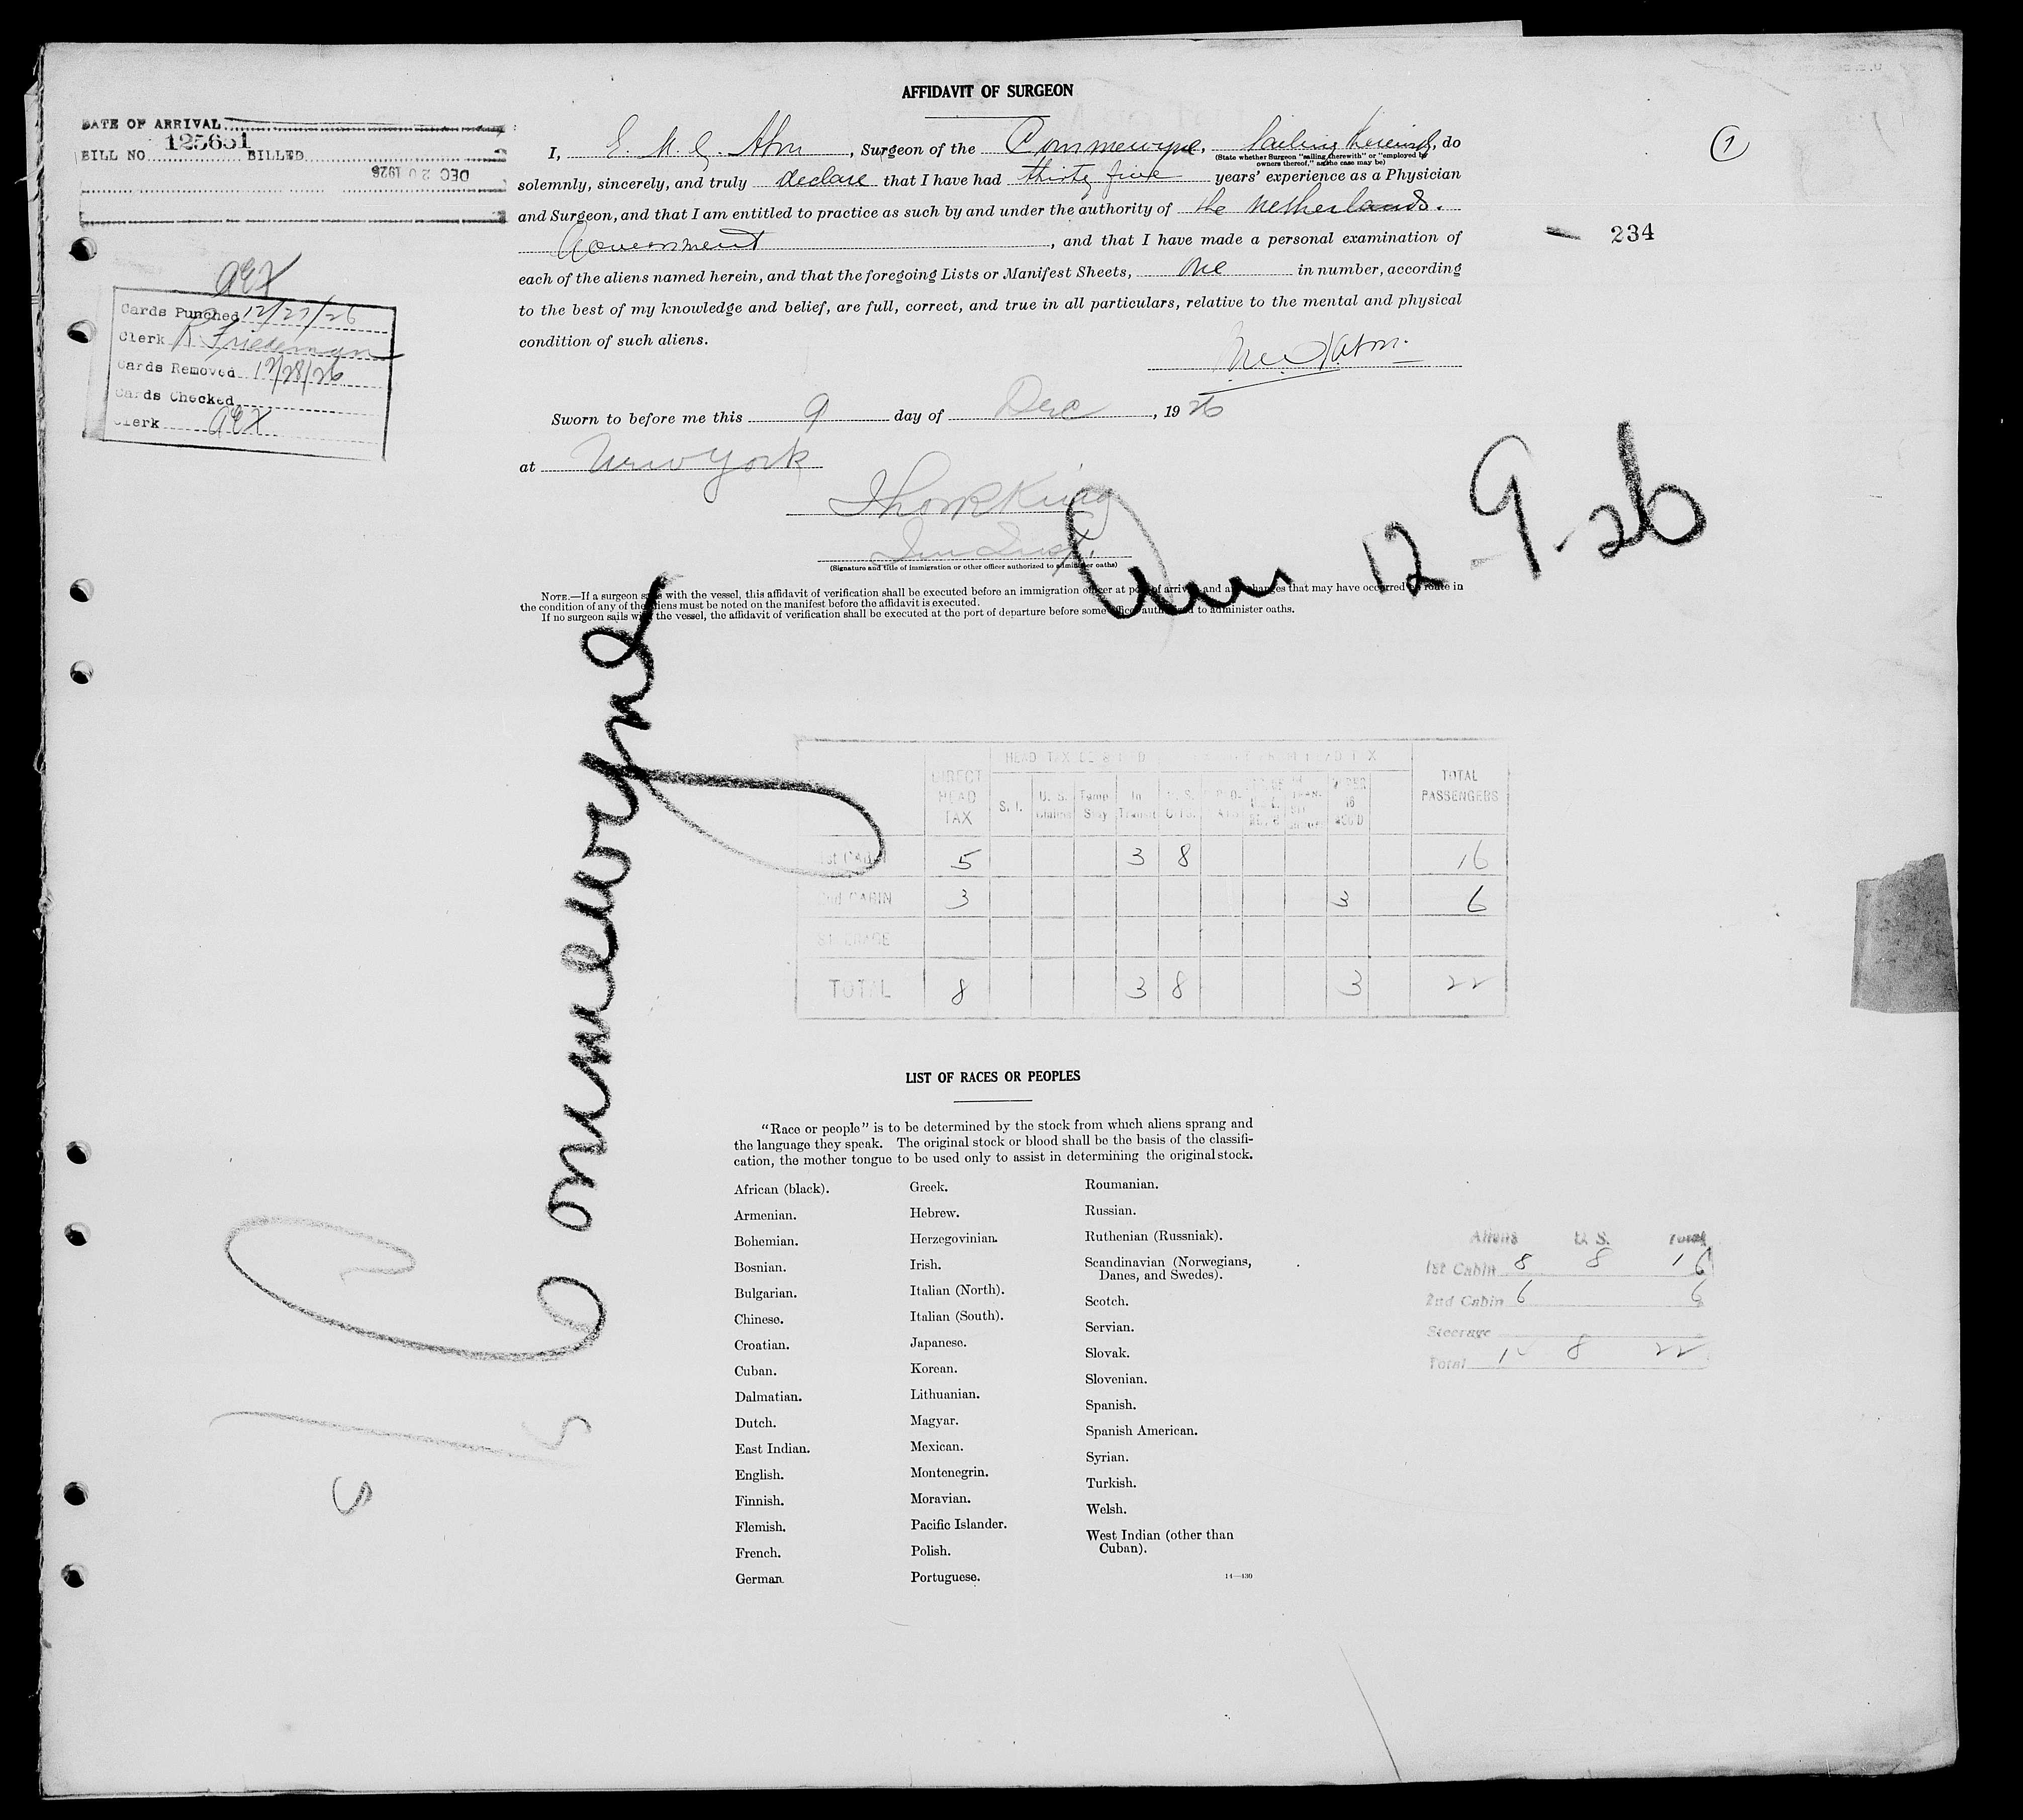 AFFIDAVIT OF SURGEON
DATE OF ARRIVAL
BILL NO. 125651 BILLED
DEC 20 1926
I, E. M. , Surgeon of the Commewyne, Sailing therewith, do
(State whether Surgeon "sailing therewith" or "employed by owners thereof," as the case may be)
solemnly, sincerely, and truly declare that I have had thirty five years' experience as a Physician
and Surgeon, and that I am entitled to practice as such by and under the authority of the Netherlands.
Government, and that I have made a personal examination of
each of the aliens named herein, and that the foregoing Lists or Manifest Sheets, one in number, according
to the best of my knowledge and belief, are full, correct, and true in all particulars, relative to the mental and physical
condition of such aliens.
1
234
AEX
Cards Punched 12/27/26
Clerk R. Friedeman
Cards Removed 12/28/26
Cards Checked
Clerk AEX
Sworn to before me this 9 day of Dec, 1926
at New York
(Signature and title of immigration or other officer authorized to administer oaths)
Arr 12-9-26
NOTE.—If a surgeon sails with the vessel, this affidavit of verification shall be executed before an immigration officer at port of arrival and any changes that may have occurred en route in
the condition of any of the aliens must be noted on the manifest before the affidavit is executed.
If no surgeon sails with the vessel, the affidavit of verification shall be executed at the port of departure before some officer authorized to administer oaths.
Commewyne
DIRECT HEAD TAX S. I. U. S. Temp Stay In Transit U. S. CITS. UNDER 16 TOTAL PASSENGERS
1st CABIN 5 3 8 16
2nd CABIN 3 3 6
STEERAGE
TOTAL 8 3 8 3 22
LIST OF RACES OR PEOPLES
"Race or people" is to be determined by the stock from which aliens sprang and
the language they speak. The original stock or blood shall be the basis of the classifi-
cation, the mother tongue to be used only to assist in determining the original stock.
African (black).
Armenian.
Bohemian.
Bosnian.
Bulgarian.
Chinese.
Croatian.
Cuban.
Dalmatian.
Dutch.
East Indian.
English.
Finnish.
Flemish.
French.
German
Greek.
Hebrew.
Herzegovinian.
Irish.
Italian (North).
Italian (South).
Japanese.
Korean.
Lithuanian.
Magyar.
Mexican.
Montenegrin.
Moravian.
Pacific Islander.
Polish.
Portuguese.
Roumanian.
Russian.
Ruthenian (Russniak).
Scandinavian (Norwegians,
Danes, and Swedes).
Scotch.
Servian.
Slovak.
Slovenian.
Spanish.
Spanish American.
Syrian.
Turkish.
Welsh.
West Indian (other than
Cuban).
14—430
Aliens U. S. Total
1st Cabin 8 8 16
2nd Cabin 6 6
Steerage
Total 8 22